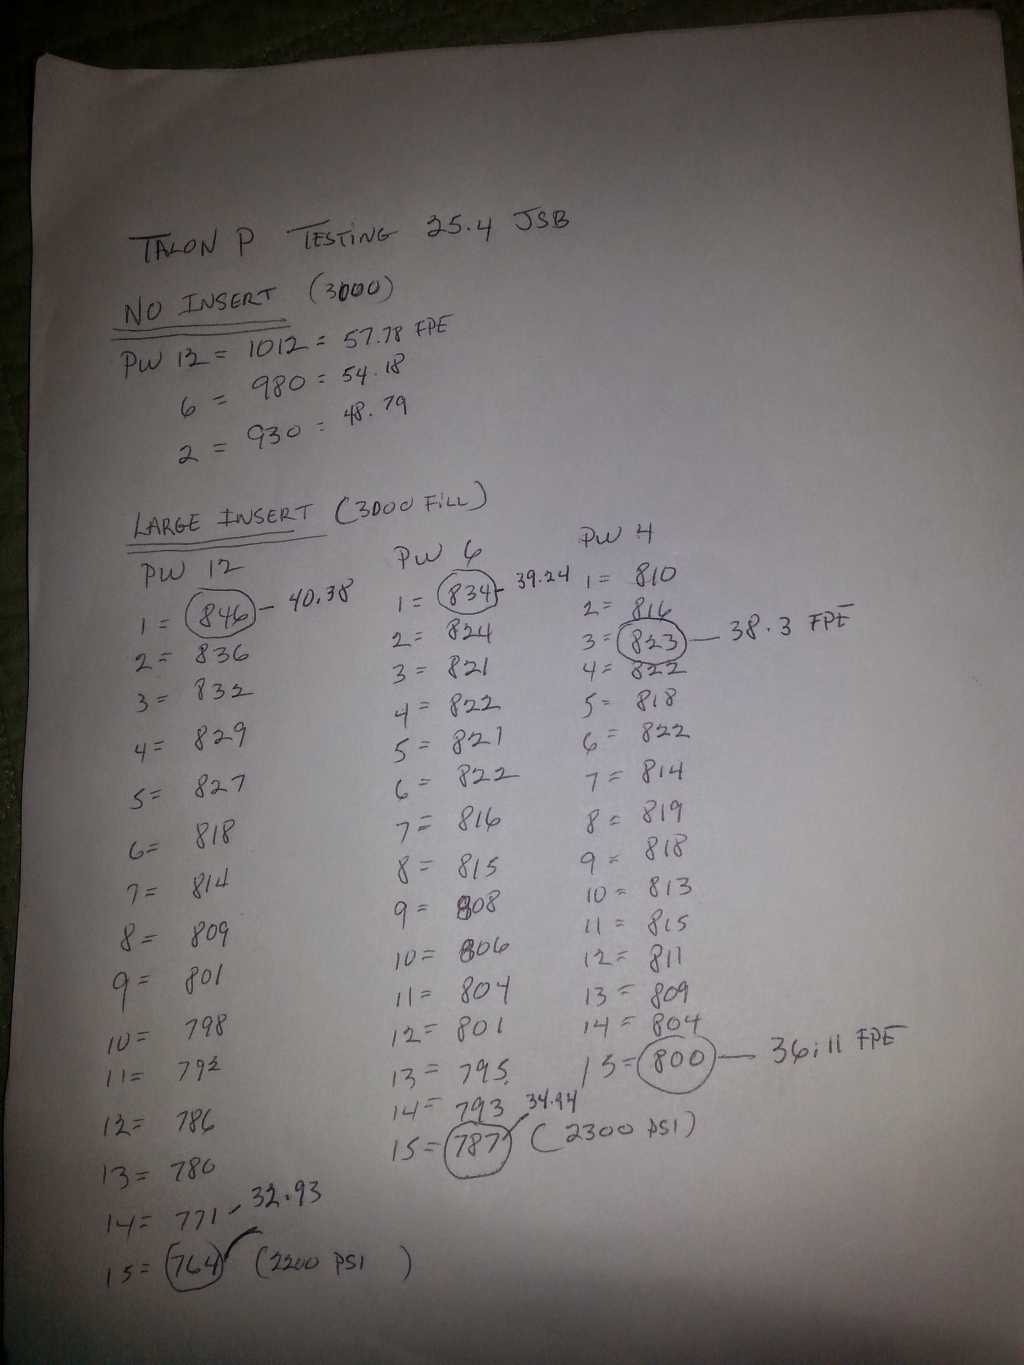 TALON P TESTING 25.4 JSB
NO INSERT (3000)
PW 12 = 1012 = 57.78 FPE
6 = 980 = 54.18
2 = 930 = 48.79
LARGE INSERT (3000 FILL)
PW 12
1 = 846 - 40.38
2 = 836
3 = 832
4 = 829
5 = 827
6 = 818
7 = 814
8 = 809
9 = 801
10 = 798
11 = 792
12 = 786
13 = 780
14 = 771
15 = 764 32.93 (2200 PSI )
PW 6
1 = 834 - 39.24
2 = 824
3 = 821
4 = 822
5 = 821
6 = 822
7 = 816
8 = 815
9 = 808
10 = 806
11 = 804
12 = 801
13 = 795
14 = 793
15 = 787 34.94 (2300 PSI)
PW 4
1 = 810
2 = 816
3 = 823 - 38.3 FPE
4 = 822
5 = 818
6 = 822
7 = 814
8 = 819
9 = 818
10 = 813
11 = 815
12 = 811
13 = 809
14 = 804
15 = 800 - 36.11 FPE